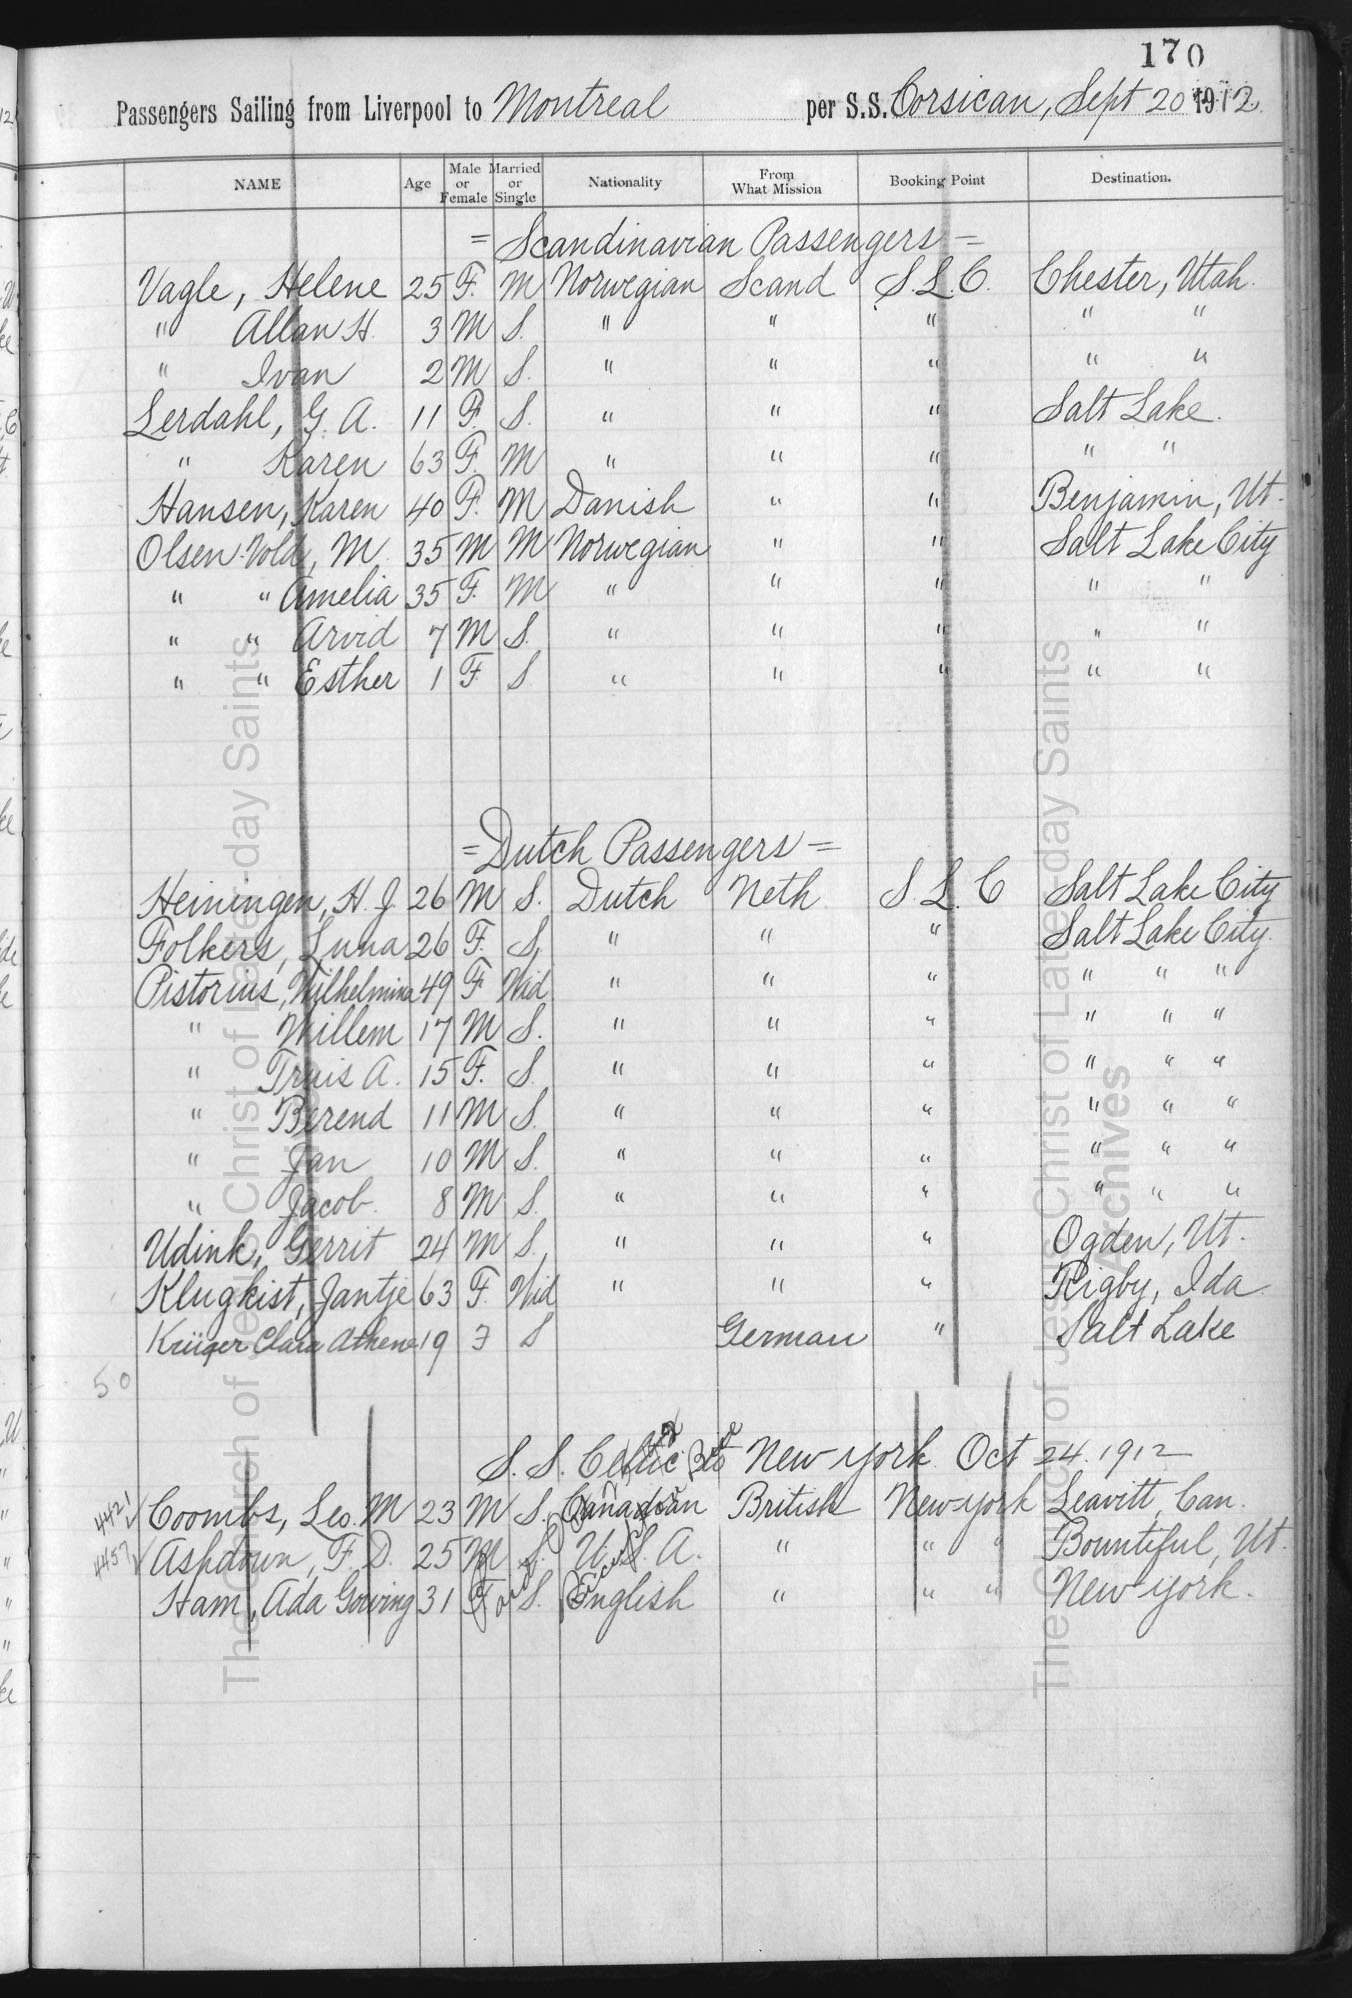 170
Passengers Sailing from Liverpool to Montreal per S.S. Corsican, Sept 20 1912.
NAME Age Male or Female Married or Single Nationality From What Mission Booking Point Destination.
= Scandinavian Passengers =
Vagle, Helene 25 F. M Norwegian Scand S.L.C. Chester, Utah.
" Allan H. 3 M S. " " " " "
" Ivan 2 M S. " " " " "
Lerdahl, G. A. 11 F. S. " " " Salt Lake.
" Karen 63 F. M " " " " "
Hansen, Karen 40 F. M Danish " " Benjamin, Ut.
Olsen Vold, M. 35 M M Norwegian " " Salt Lake City
" " Amelia 35 F. M " " " " "
" " Arvid 7 M S. " " " " "
" " Esther 1 F S. " " " " "
= Dutch Passengers =
Heiningen, H. J. 26 M S. Dutch Neth. S.L.C Salt Lake City
Folkers, Luna 26 F. S. " " " Salt Lake City.
Pistorius, Wilhelmina 49 F Wid. " " " " " "
" Willem 17 M S. " " " " " "
" Truis A. 15 F. S. " " " " " "
" Berend 11 M S. " " " " " "
" Jan 10 M S. " " " " " "
" Jacob. 8 M S. " " " " " "
Udink, Gerrit 24 M S. " " " Ogden, Ut.
Klugkist, Jantje 63 F. Wid " " " Rigby, Ida.
Krüger Clara Athene 19 F S German " Salt Lake
50
S. S. Celtic to New York Oct 24. 1912
4421 Coombs, Leo. M 23 M S. Canadian British New York Leavitt, Can.
4457 Ashdown, F. D. 25 M S. U. S. A. " " " Bountiful, Ut.
Ham, Ada Gowing 31 F S. English " " " New York.
The Church of Jesus Christ of Latter-day Saints
The Church of Jesus Christ of Latter-day Saints
Archives